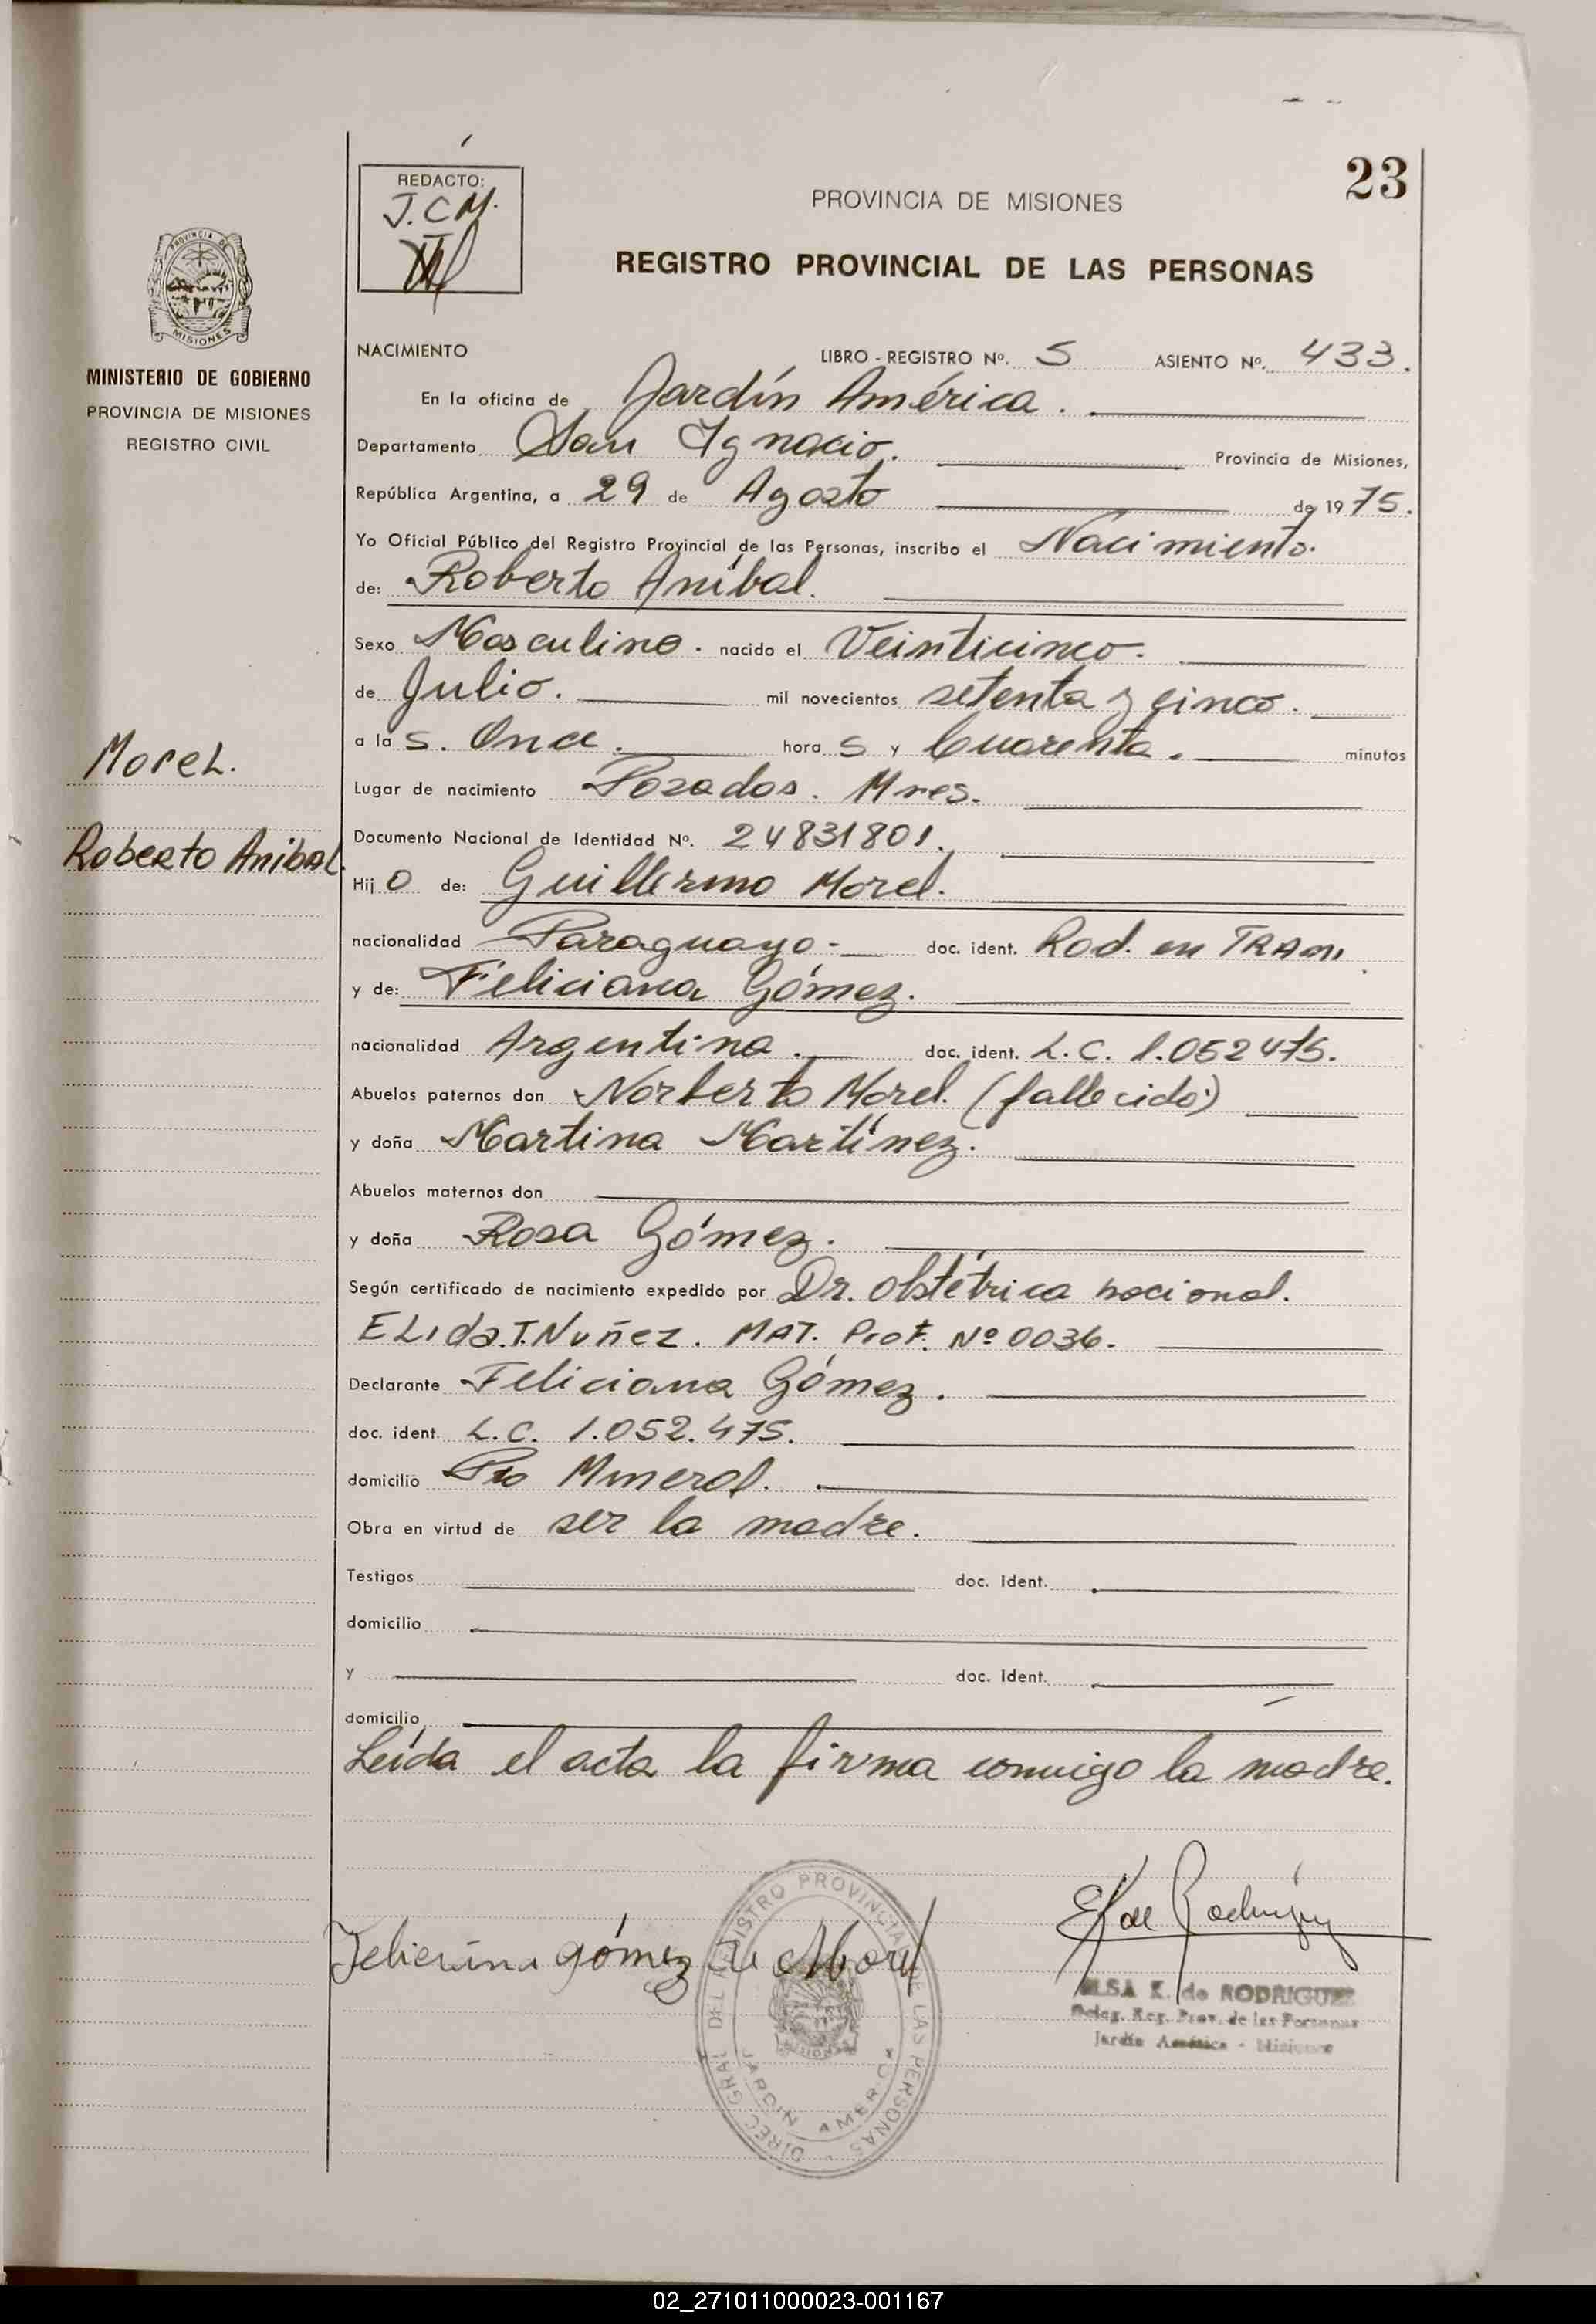 23
REDACTO:
J.C.M.
PROVINCIA DE MISIONES
REGISTRO PROVINCIAL DE LAS PERSONAS
PROVINCIA DE
MISIONES
MINISTERIO DE GOBIERNO
PROVINCIA DE MISIONES
REGISTRO CIVIL
Morel.
Roberto Anibal.
NACIMIENTO LIBRO - REGISTRO Nº. 5 ASIENTO Nº. 433.
En la oficina de Jardín América.
Departamento San Ignacio. Provincia de Misiones,
República Argentina, a 29 de Agosto de 1975.
Yo Oficial Público del Registro Provincial de las Personas, inscribo el Nacimiento.
de: Roberto Aníbal.
Sexo Masculino. nacido el Veinticinco.
de Julio. mil novecientos setenta y cinco.
a las. Once. horas y Cuarenta. minutos
Lugar de nacimiento Posadas. Mnes.
Documento Nacional de Identidad Nº. 24831801.
Hijo de: Guillermo Morel.
nacionalidad Paraguayo- doc. ident. Rad. en TRAM.
y de: Feliciana Gómez.
nacionalidad Argentina. doc. ident. L.C. 1.052475.
Abuelos paternos don Norberto Morel. (fallecido)
y doña Martina Martínez.
Abuelos maternos don
y doña Rosa Gómez.
Según certificado de nacimiento expedido por Dr. Obstétrica nacional.
ELida.T.Nuñez. MAT. Prof. Nº 0036.
Declarante Feliciana Gómez.
doc. ident. L.C. 1.052.475.
domicilio Pto Mineral.
Obra en virtud de ser la madre.
Testigos doc. ident.
domicilio
y doc. ident.
domicilio
Leída el acta la firma conmigo la madre.
Feliciana gómez de Morel
E K de Rodríguez
ELSA K. de RODRIGUEZ
Deleg. Reg. Prov. de las Personas
Jardín América - Misiones
DIREC. GRAL. DEL REGISTRO PROVINCIAL DE LAS PERSONAS
MISIONES
JARDIN AMERICA
02_271011000023-001167